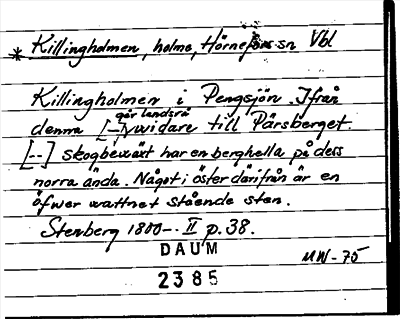 * Killingholmen, holme, Hörnefors sn Vbl
Killingholmen i Pengsjön. Ifrån
går landsrå
denna [-] vidare till Pärsberget.
[--] skogbewäxt har en berghella på dess
norra ända. Något i öster därifrån är en
öfwer wattnet stående sten.
Stenberg 1800-. II p. 38.
DAUM
MW-75
2385